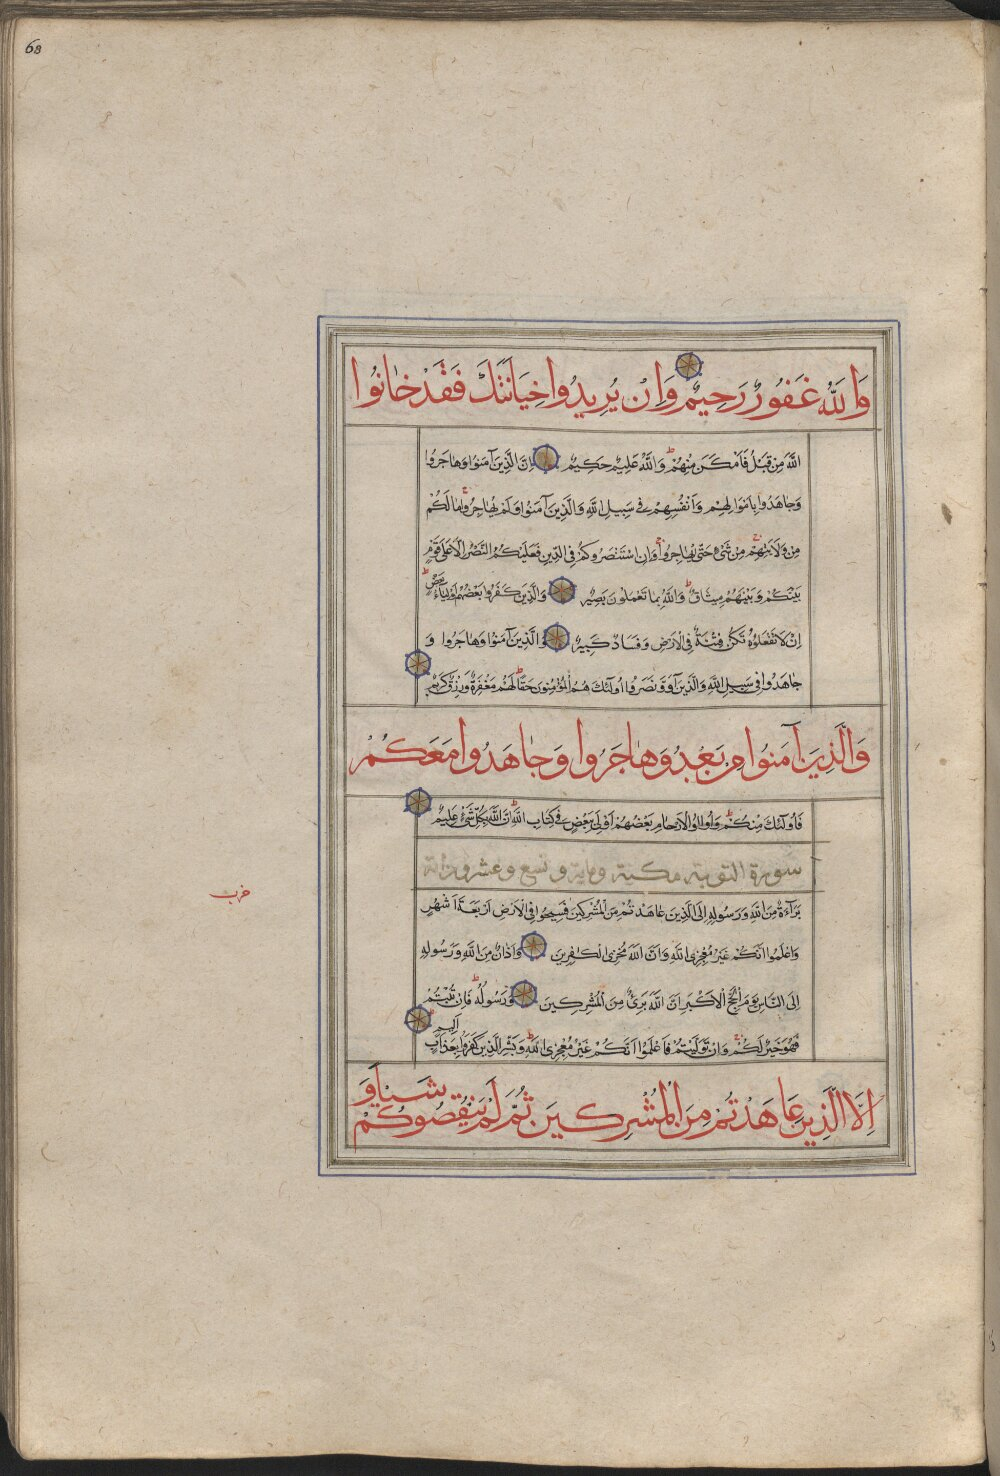 68
وَاللّٰهُ غَفُورٌ رَحِيمٌ وَاِنْ يُرِيدُوا خِيَانَتَكَ فَقَدْ خَانُوا
اللّٰهَ مِنْ قَبْلُ فَاَمْكَنَ مِنْهُمْ وَاللّٰهُ عَلِيمٌ حَكِيمٌ اِنَّ الَّذِينَ آمَنُوا وَهَاجَرُوا
وَجَاهَدُوا بِاَمْوَالِهِمْ وَاَنْفُسِهِمْ فِي سَبِيلِ اللّٰهِ وَالَّذِينَ آمَنُوا وَلَمْ يُهَاجِرُوا مَا لَكُمْ
مِنْ وَلَايَتِهِمْ مِنْ شَيْءٍ حَتّٰى يُهَاجِرُوا وَاِنِ اسْتَنْصَرُوكُمْ فِي الدِّينِ فَعَلَيْكُمُ النَّصْرُ اِلَّا عَلٰى قَوْمٍ
بَيْنَكُمْ وَبَيْنَهُمْ مِيثَاقٌ وَاللّٰهُ بِمَا تَعْمَلُونَ بَصِيرٌ وَالَّذِينَ كَفَرُوا بَعْضُهُمْ اَوْلِيَاءُ بَعْضٍ
اِنْ لَا تَفْعَلُوهُ تَكُنْ فِتْنَةٌ فِي الْاَرْضِ وَفَسَادٌ كَبِيرٌ وَالَّذِينَ آمَنُوا وَهَاجَرُوا وَ
جَاهَدُوا فِي سَبِيلِ اللّٰهِ وَالَّذِينَ آوَوْ وَنَصَرُوا اُولٰئِكَ هُمُ الْمُؤْمِنُونَ حَقًّا لَهُمْ مَغْفِرَةٌ وَرِزْقٌ كَرِيمٌ
وَالَّذِينَ آمَنُوا مِنْ بَعْدُ وَهَاجَرُوا وَجَاهَدُوا مَعَكُمْ
فَاُولٰئِكَ مِنْكُمْ وَاُولُوا الْاَرْحَامِ بَعْضُهُمْ اَوْلٰى بِبَعْضٍ فِي كِتَابِ اللّٰهِ اِنَّ اللّٰهَ بِكُلِّ شَيْءٍ عَلِيمٌ
سورة التوبة مكية وماية وتسع وعشرون آية
بَرَآءَةٌ مِنَ اللّٰهِ وَرَسُولِهِ اِلَى الَّذِينَ عَاهَدْتُمْ مِنَ الْمُشْرِكِينَ فَسِيحُوا فِي الْاَرْضِ اَرْبَعَةَ اَشْهُرٍ
وَاعْلَمُوا اَنَّكُمْ غَيْرُ مُعْجِزِي اللّٰهِ وَاَنَّ اللّٰهَ مُخْزِي الْكَافِرِينَ وَاَذَانٌ مِنَ اللّٰهِ وَرَسُولِهِ
اِلَى النَّاسِ يَوْمَ الْحَجِّ الْاَكْبَرِ اَنَّ اللّٰهَ بَرِيٌ مِنَ الْمُشْرِكِينَ وَرَسُولُهُ فَاِنْ تُبْتُمْ
فَهُوَ خَيْرٌ لَكُمْ وَاِنْ تَوَلَّيْتُمْ فَاعْلَمُوا اَنَّكُمْ غَيْرُ مُعْجِزِي اللّٰهِ وَبَشِّرِ الَّذِينَ كَفَرُوا بِعَذَابٍ اَلِيمٍ
اِلَّا الَّذِينَ عَاهَدْتُمْ مِنَ الْمُشْرِكِينَ ثُمَّ لَمْ يَنْقُصُوكُمْ شَيْئًا وَ
حزب